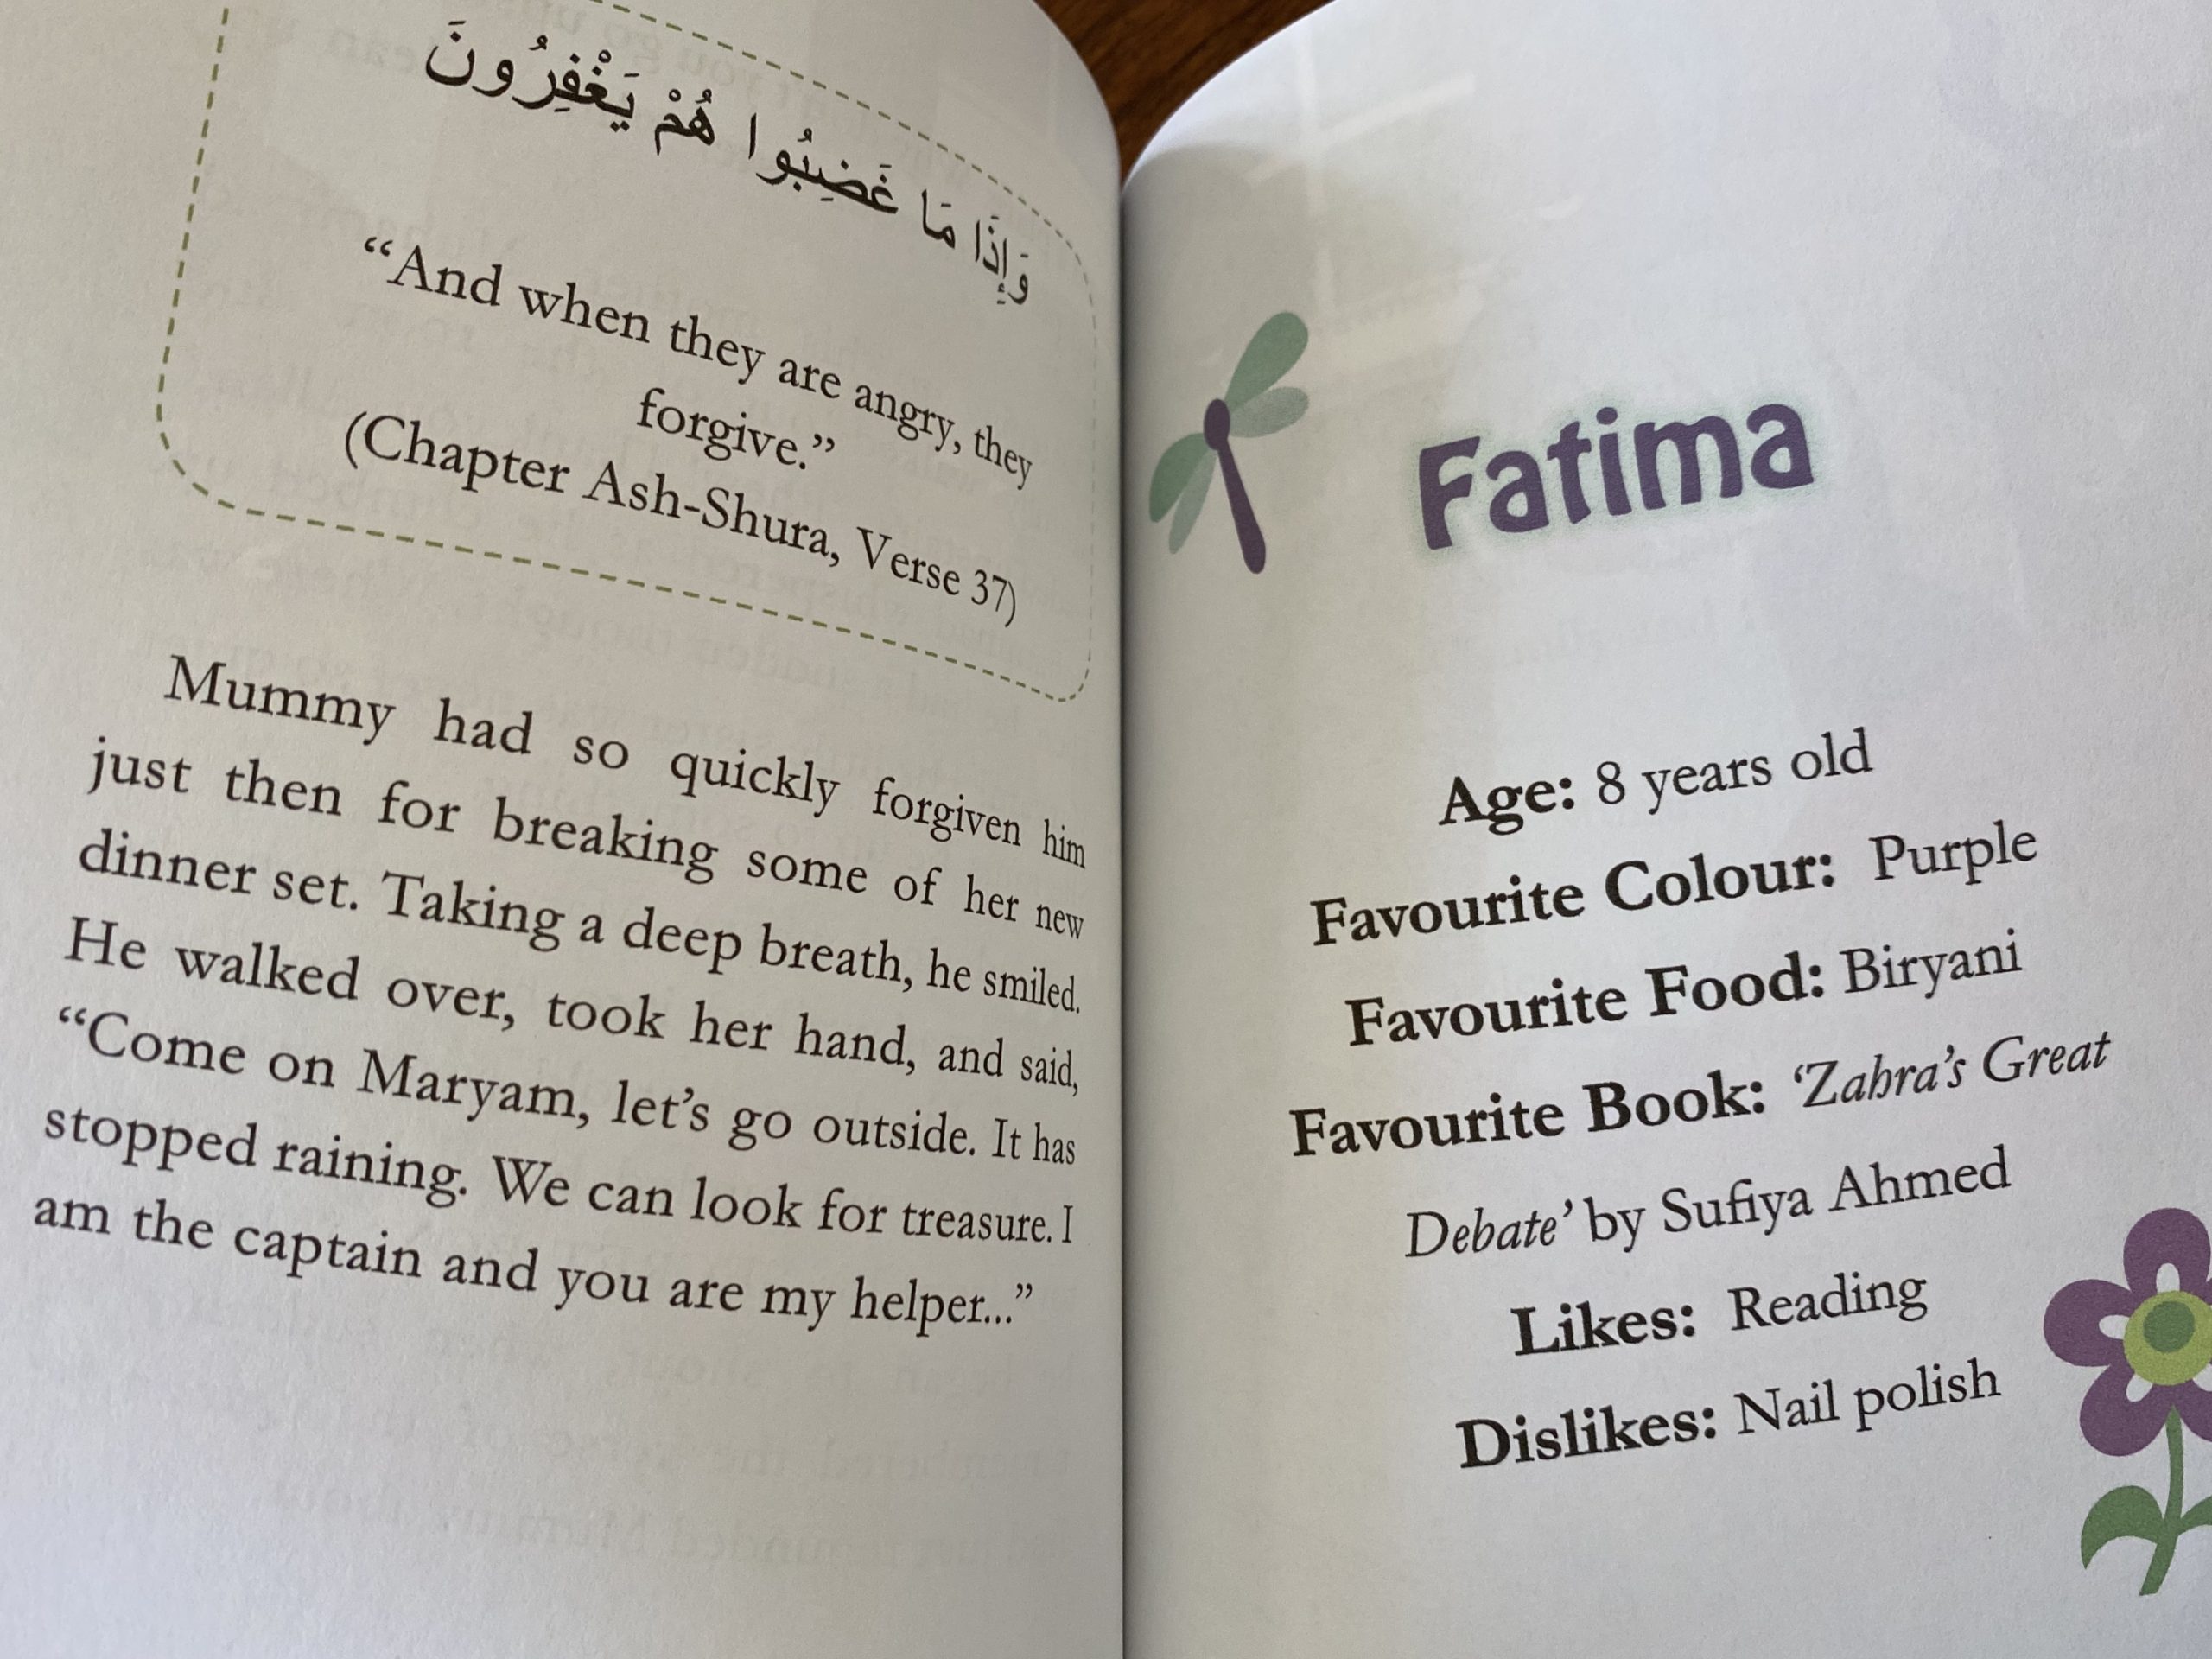 وَإِذَا مَا غَضِبُوا هُمْ يَغْفِرُونَ
“And when they are angry, they
forgive.”
(Chapter Ash-Shura, Verse 37)
Mummy had so quickly forgiven him
just then for breaking some of her new
dinner set. Taking a deep breath, he smiled.
He walked over, took her hand, and said,
“Come on Maryam, let’s go outside. It has
stopped raining. We can look for treasure. I
am the captain and you are my helper...”
Fatima
Age: 8 years old
Favourite Colour: Purple
Favourite Food: Biryani
Favourite Book: ‘Zahra’s Great
Debate’ by Sufiya Ahmed
Likes: Reading
Dislikes: Nail polish